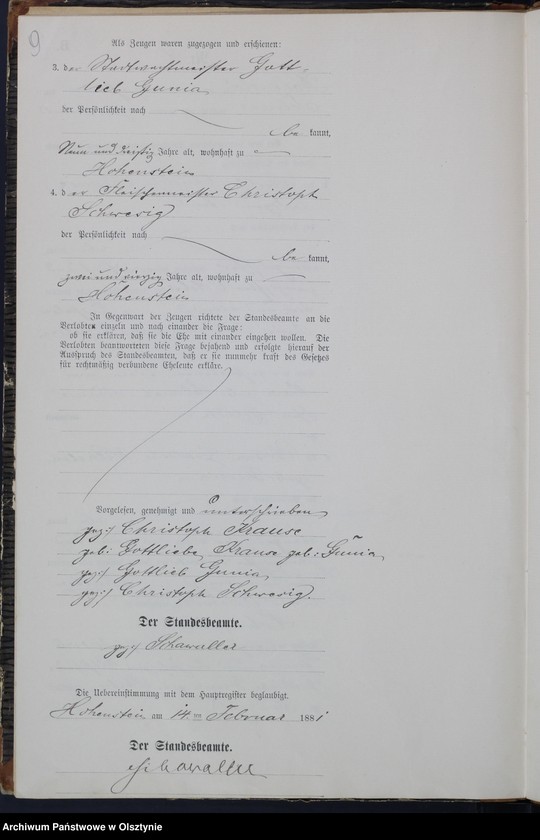 9
Als Zeugen waren zugezogen und erschienen:
3. der Stadtwachtmeister Gott-
lieb Gunia
der Persönlichkeit nach
bekannt,
Neun und dreißig Jahre alt, wohnhaft zu
Hohenstein
4. der Fleischermeister Christoph
Schwesig
der Persönlichkeit nach
bekannt,
zwei und vierzig Jahre alt, wohnhaft zu
Hohenstein
In Gegenwart der Zeugen richtete der Standesbeamte an die
Verlobten einzeln und nach einander die Frage:
ob sie erklären, daß sie die Ehe mit einander eingehen wollen. Die
Verlobten beantworteten diese Frage bejahend und erfolgte hierauf der
Ausspruch des Standesbeamten, daß er sie nunmehr kraft des Gesetzes
für rechtmäßig verbundene Eheleute erkläre.
Vorgelesen, genehmigt und unterschrieben
gez:/ Christoph Krause
geb: Gottliebe Krause geb: Gunia
gez:/ Gottlieb Gunia
gez:/ Christoph Schwesig.
Der Standesbeamte.
gez:/ Schawaller
Die Uebereinstimmung mit dem Hauptregister beglaubigt.
Hohenstein am 14. ten Februar 1881
Der Standesbeamte.
Schawaller
Archiwum Państwowe w Olsztynie